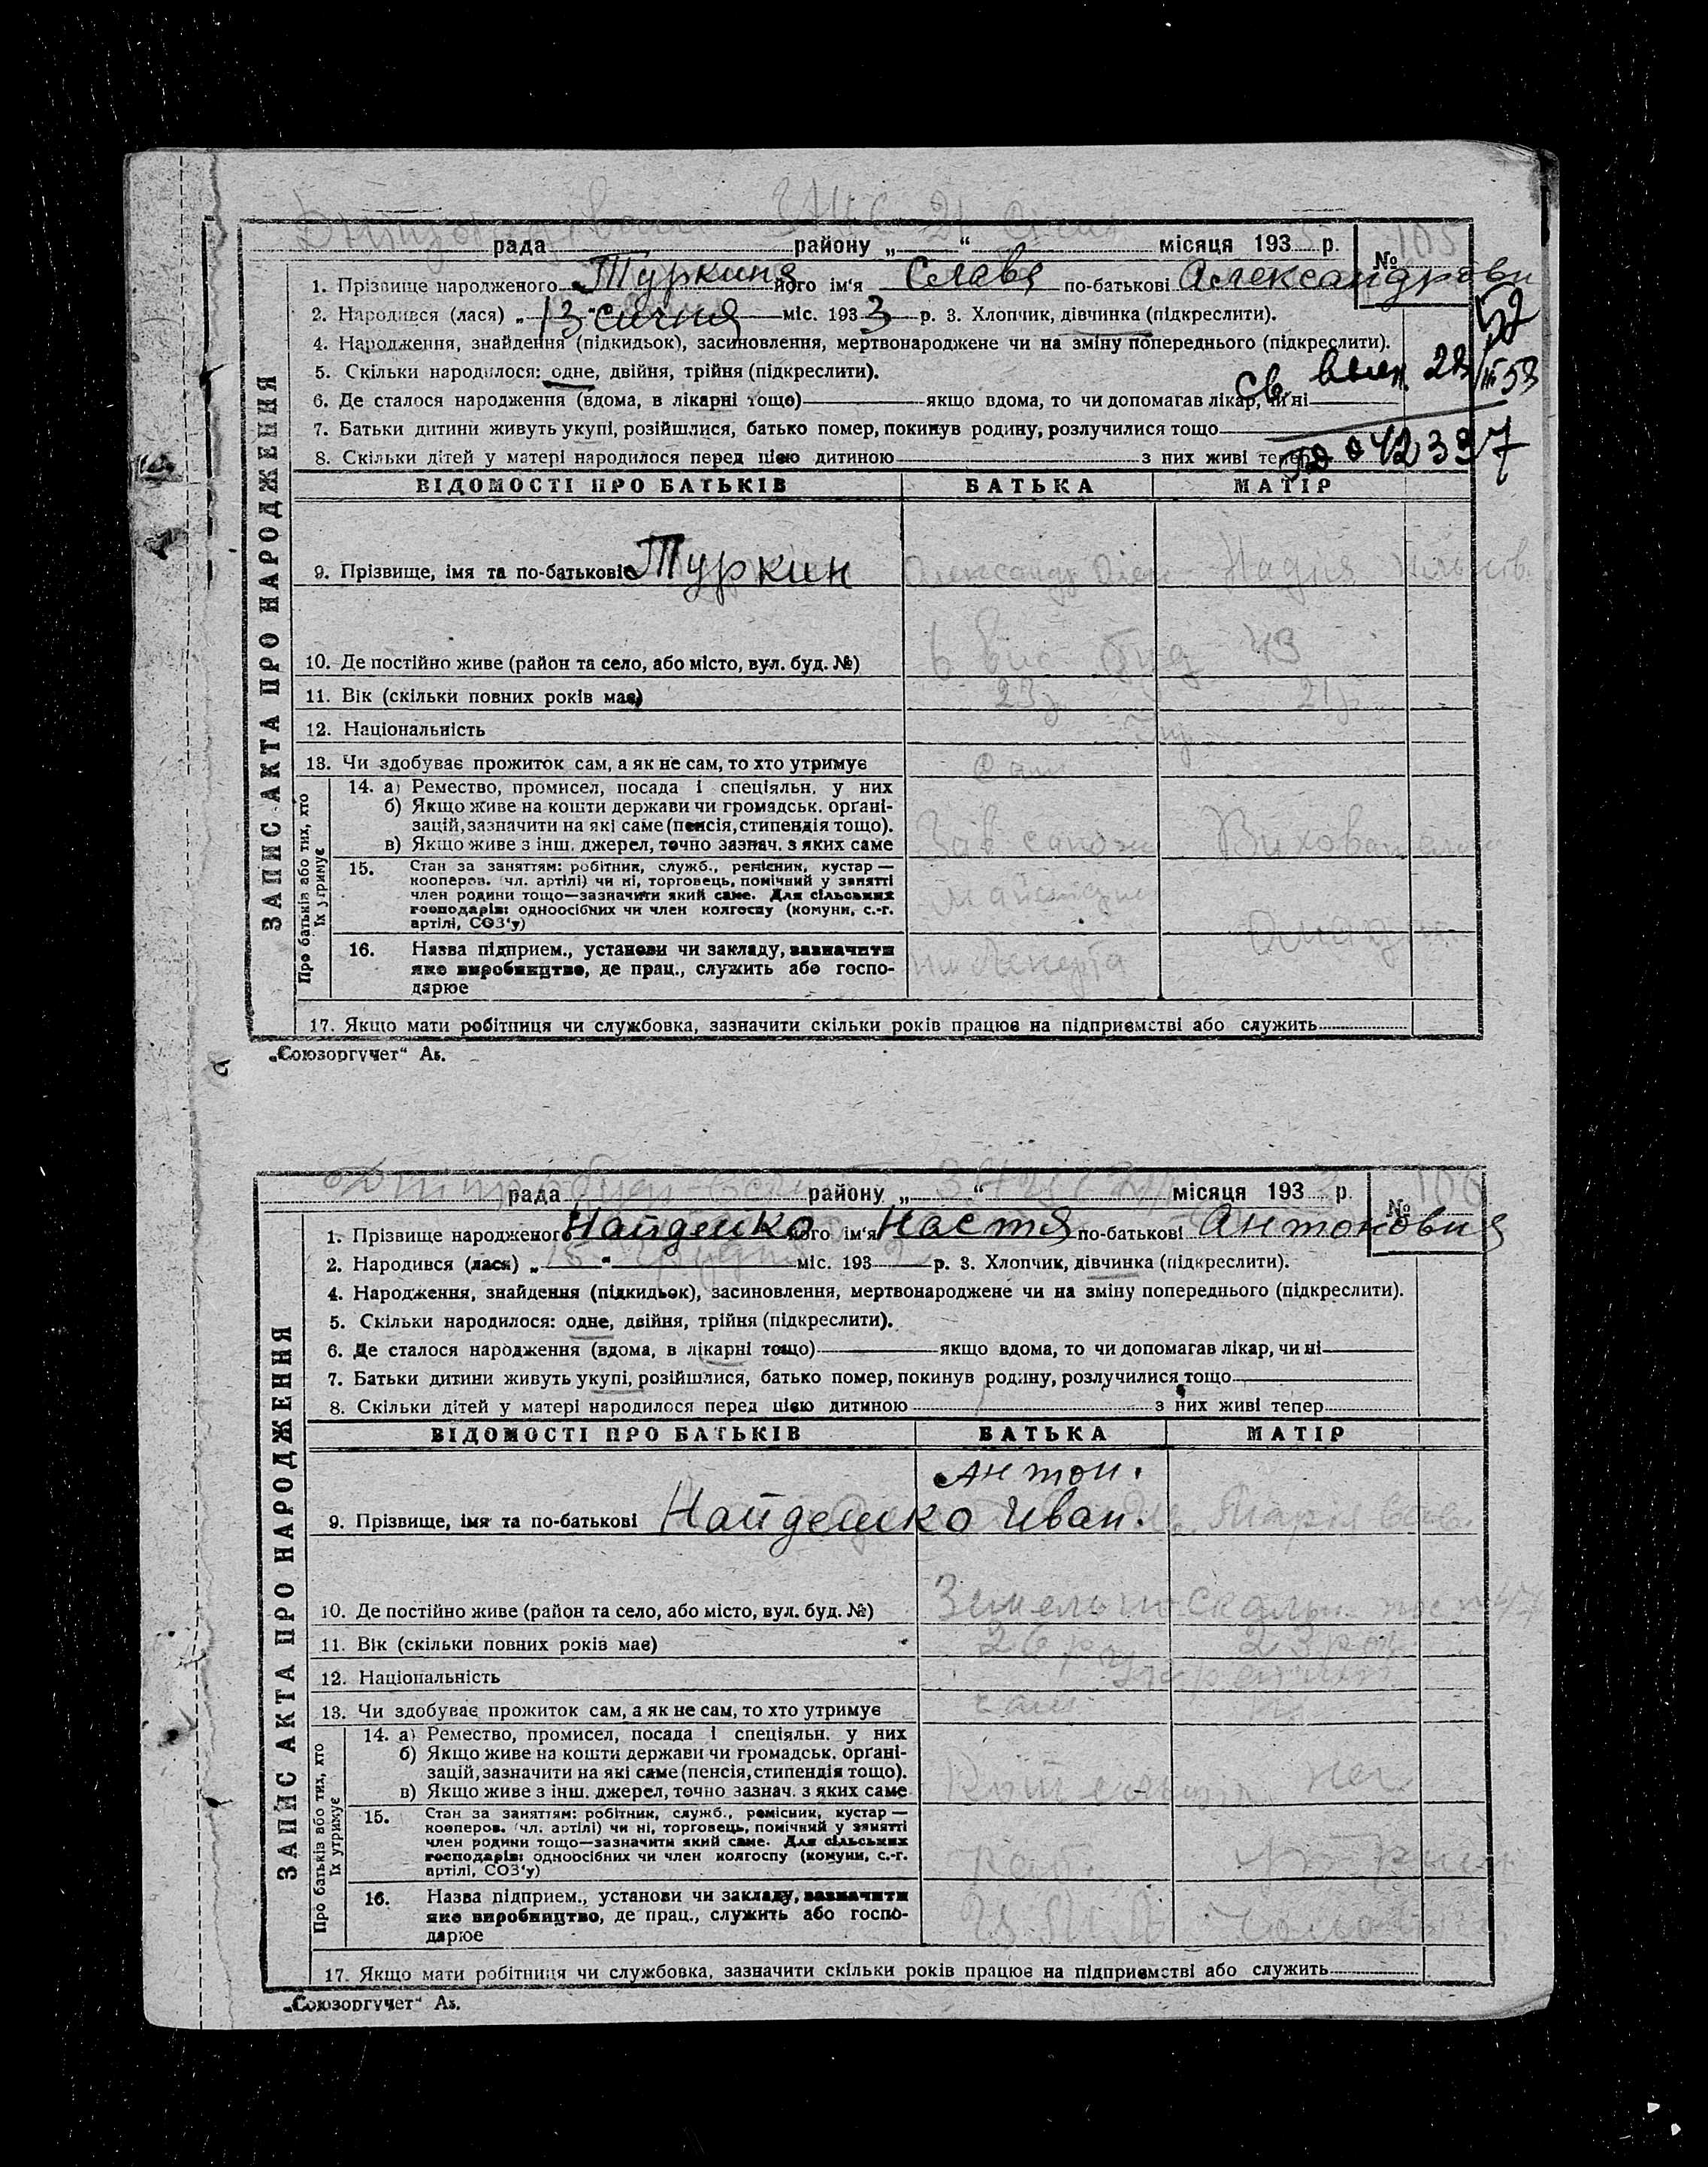 ЗАПИС АКТА ПРО НАРОДЖЕННЯ
рада району „ “ місяця 193 р. № 105
1. Прізвище народженого Туркиня його ім‘я Слава по-батькові Александрови
2. Народився (лася) „13“ січня міс. 1933 р. 3. Хлопчик, дівчинка (підкреслити).
52
4. Народження, знайдення (підкидьок), засиновлення, мертвонароджене чи на зміну попереднього (підкреслити).
5. Скільки народилося: одне, двійня, трійня (підкреслити).
Св. 28/III 53
6. Де сталося народження (вдома, в лікарні тощо) якщо вдома, то чи допомагав лікар, чи ні
7. Батьки дитини живуть укупі, розійшлися, батько помер, покинув родину, розлучилися тощо
8. Скільки дітей у матері народилося перед цією дитиною з них живі тепер
042397
ВІДОМОСТІ ПРО БАТЬКІВ БАТЬКА МАТІР
9. Прізвище, імя та по-батькові Туркин Александр Надія
10. Де постійно живе (район та село, або місто, вул. буд. №) буд 43
11. Вік (скільки повних років має) 23 21
12. Національність
13. Чи здобуває прожиток сам, а як не сам, то хто утримує сам
Про батьків або тих, хто їх утримує
14. а) Ремество, промисел, посада і спеціяльн. у них
б) Якщо живе на кошти держави чи громадськ. орґані-
зацій, зазначити на які саме (пенсія, стипендія тощо).
в) Якщо живе з інш. джерел, точно зазнач. з яких саме Зав сапож
15. Стан за заняттям: робітник, служб., ремісник, кустар —
кооперов. (чл. артілі) чи ні, торговець, помічний у занятті
член родини тощо—зазначити який саме. Для сільських
господарів: одноосібних чи член колгоспу (комуни, с.-г.
артілі, СОЗ‘у)
16. Назва підприєм., установи чи закладу, зазначити
яке виробництво, де прац., служить або госпо-
дарює
17. Якщо мати робітниця чи службовка, зазначити скільки років працює на підприємстві або служить
„Союзоргучет“ Аз.
ЗАПИС АКТА ПРО НАРОДЖЕННЯ
рада району „ “ місяця 193 р. № 106
1. Прізвище народженого Найдешко його ім‘я Настя по-батькові Антоновня
2. Народився (лася) „15“ грудня міс. 193 р. 3. Хлопчик, дівчинка (підкреслити).
4. Народження, знайдення (підкидьок), засиновлення, мертвонароджене чи на зміну попереднього (підкреслити).
5. Скільки народилося: одне, двійня, трійня (підкреслити).
6. Де сталося народження (вдома, в лікарні тощо) якщо вдома, то чи допомагав лікар, чи ні
7. Батьки дитини живуть укупі, розійшлися, батько помер, покинув родину, розлучилися тощо
8. Скільки дітей у матері народилося перед цією дитиною з них живі тепер
ВІДОМОСТІ ПРО БАТЬКІВ БАТЬКА МАТІР
Антон.
9. Прізвище, імя та по-батькові Найдешко Иван. Марія
10. Де постійно живе (район та село, або місто, вул. буд. №)
11. Вік (скільки повних років має) 26 23
12. Національність
13. Чи здобуває прожиток сам, а як не сам, то хто утримує сам
Про батьків або тих, хто їх утримує
14. а) Ремество, промисел, посада і спеціяльн. у них
б) Якщо живе на кошти держави чи громадськ. орґані-
зацій, зазначити на які саме (пенсія, стипендія тощо).
в) Якщо живе з інш. джерел, точно зазнач. з яких саме
15. Стан за заняттям: робітник, служб., ремісник, кустар —
кооперов. (чл. артілі) чи ні, торговець, помічний у занятті
член родини тощо—зазначити який саме. Для сільських
господарів: одноосібних чи член колгоспу (комуни, с.-г.
артілі, СОЗ‘у)
16. Назва підприєм., установи чи закладу, зазначити
яке виробництво, де прац., служить або госпо-
дарює
17. Якщо мати робітниця чи службовка, зазначити скільки років працює на підприємстві або служить
„Союзоргучет“ Аз.